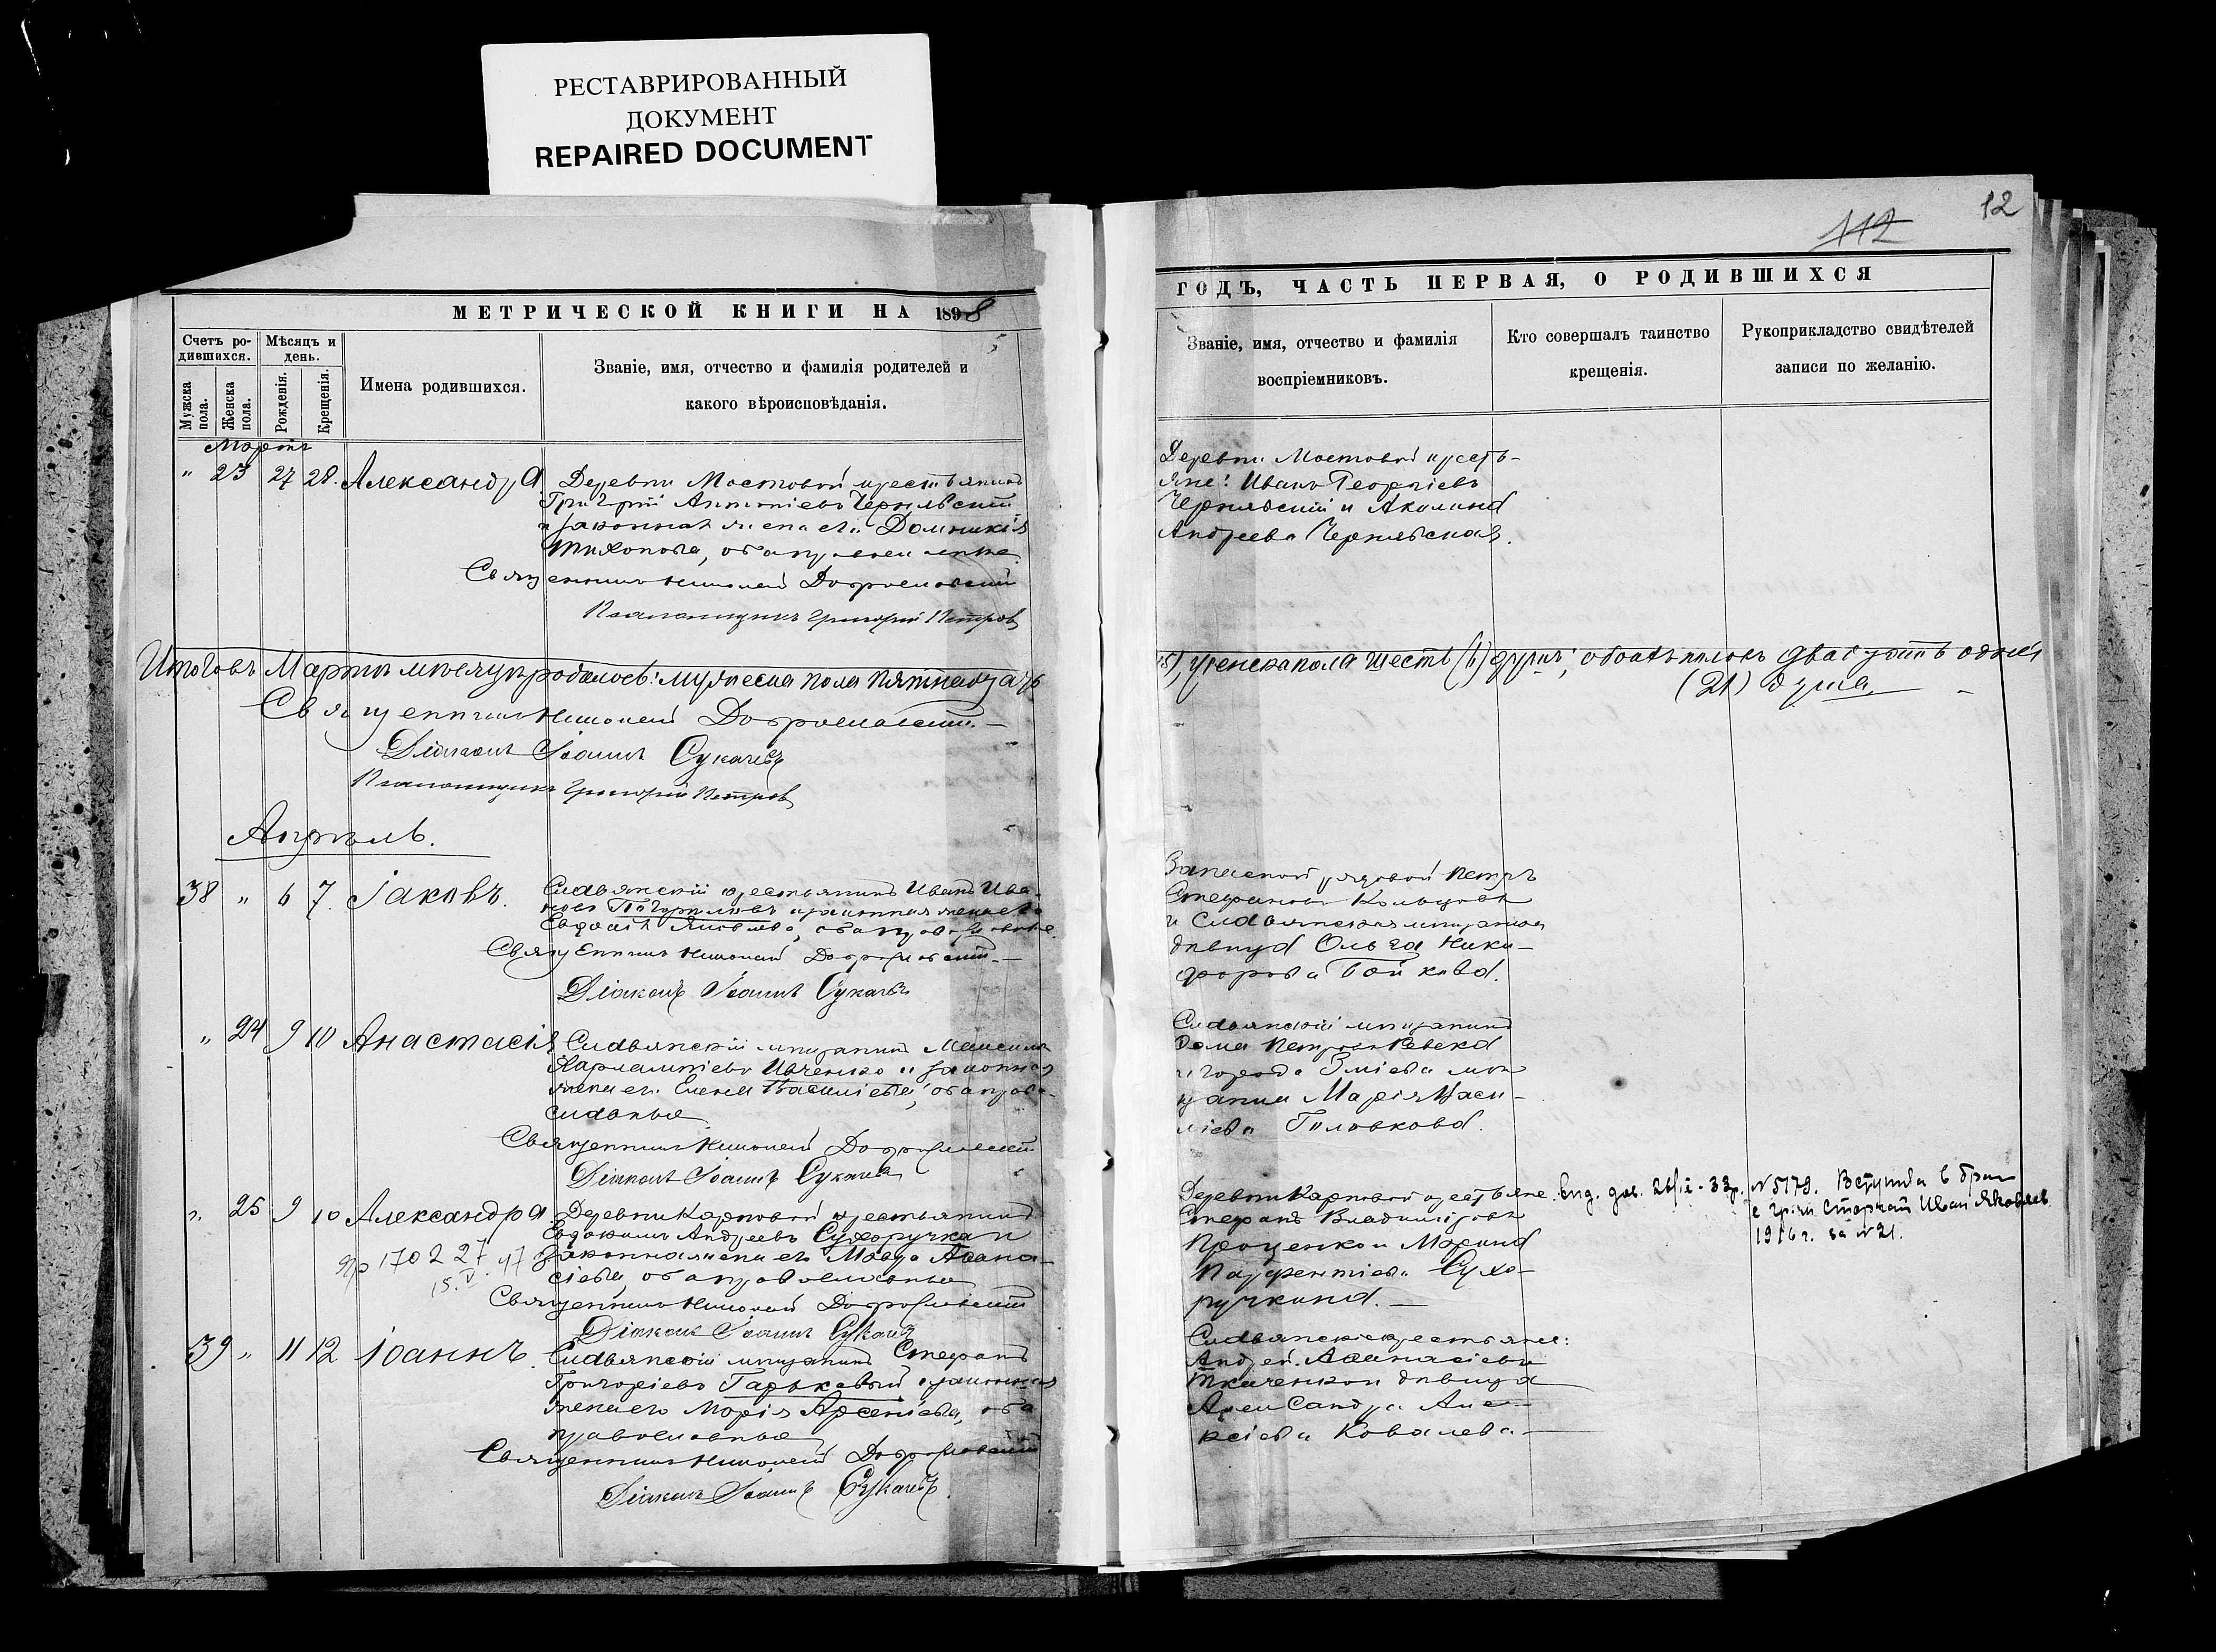 РЕСТАВРИРОВАННЫЙ
ДОКУМЕНТ
REPAIRED DOCUMENT
МЕТРИЧЕСКОЙ КНИГИ НА 1898
Счетъ ро-
дившихся.
Мѣсяцъ и
день.
Мужска
пола.
Женска
пола.
Рожденія.
Крещенія.
Имена родившихся.
Званіе, имя, отчество и фамилія родителей и
какого вѣроисповѣданія.
Мартъ
" 23 27 28. Александра
Деревни Мостовой крестьянинъ
Григорій Антоніевъ Чернявскій
и законная жена его Домникія
Тихонова, оба православные
Священникъ Николай Доброславскій
Псаломщикъ Григорій Петровъ
Итого въ Мартѣ мѣсяцѣ родилось: мужеска пола пятнадцать
Священникъ Николай Доброславскій
Діаконъ Іоаннъ Сукачевъ
Псаломщикъ Григорій Петровъ
Апрѣль.
38 " 6 7. Іаковъ.
Славянскій крестьянинъ Иванъ Ива-
новъ и законная жена его
Евдокія Яковлева, оба православные.
Священникъ Николай Доброславскій
Діаконъ Іоаннъ Сукачевъ
" 24 9 10 Анастасія
Славянскій мѣщанинъ Максимъ
Харлампіевъ Ивченко и законная
жена его Елена Васильева, оба право-
славные
Священникъ Николай Доброславскій
Діаконъ Іоаннъ Сукачевъ
" 25 9 10 Александра
Деревни Карповой крестьянинъ
Евдокимъ Андреевъ Сухоручка и
законная жена его Мавра Аѳана-
сіева, оба православные
170227
Священникъ Николай Доброславскій
Діаконъ Іоаннъ Сукачевъ
39 " 11 12 Іоаннъ.
Славянскій мѣщанинъ Стефанъ
Григоріевъ Гарькавый и законная
жена его Марія Арсеніева, оба
православные
Священникъ Николай Доброславскій
Діаконъ Іоаннъ Сукачевъ.
112
12
ГОДЪ, ЧАСТЬ ПЕРВАЯ, О РОДИВШИХСЯ
Званіе, имя, отчество и фамилія
воспріемниковъ.
Кто совершалъ таинство
крещенія.
Рукоприкладство свидѣтелей
записи по желанію.
Деревни Мостовой кресть-
яне: Иванъ Георгіевъ
Чернявскій и Акилина
Андреева Чернявская.
(15), женска пола шесть (6) душъ; обоихъ половъ двадцать одна
(21) душа.
Запасной рядовой Петръ
Стефановъ Кольцовъ
и Славянская мѣщанка
дѣвица Ольга Ники-
форова Бойкова.
Славянскій мѣщанинъ
Петровъ
и города Зміева мѣ-
щанка Марія Васи-
ліева Головкова.
Деревни Карповой крестьяне
Стефанъ Владиміровъ
Проценко и Марина
Парфентіева Сухо-
ручкина.
Выд. дов. 33г. №5179. Вступила в брак
с гр-ном Иван Яковлев
1916 г. за №21.
Славянскіе крестьяне:
Андрей Аѳанасіевъ
Ткаченко и дѣвица
Александра Але-
ксіева Ковалева